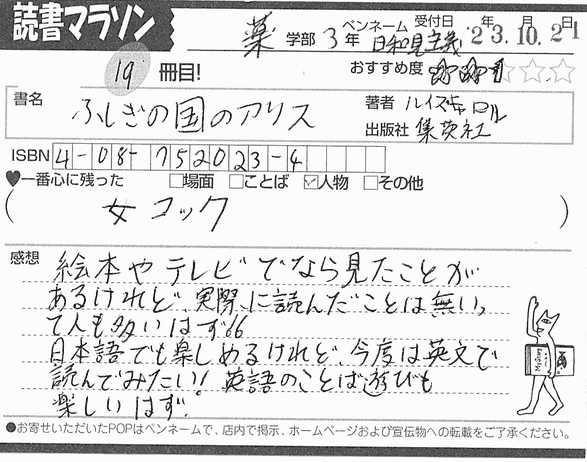 読書マラソン
薬 学部 3 年 ペンネーム 日和見主義 受付日 '23年10月21日
19 冊目! おすすめ度 ☆☆☆☆☆
書名 ふしぎの国のアリス 著者 ルイス・キャロル
出版社 集英社
ISBN 4-08-752023-4
♥一番心に残った □場面 □ことば ☑人物 □その他
( 女コック )
感想 絵本やテレビでなら見たことが
あるけれど、実際に読んだことは無いっ
て人も多いはず。
日本語でも楽しめるけれど、今度は英文で
読んでみたい! 英語のことば遊びも
楽しいはず.
●お寄せいただいたPOPはペンネームで、店内で掲示、ホームページおよび宣伝物への転載をご了承ください。